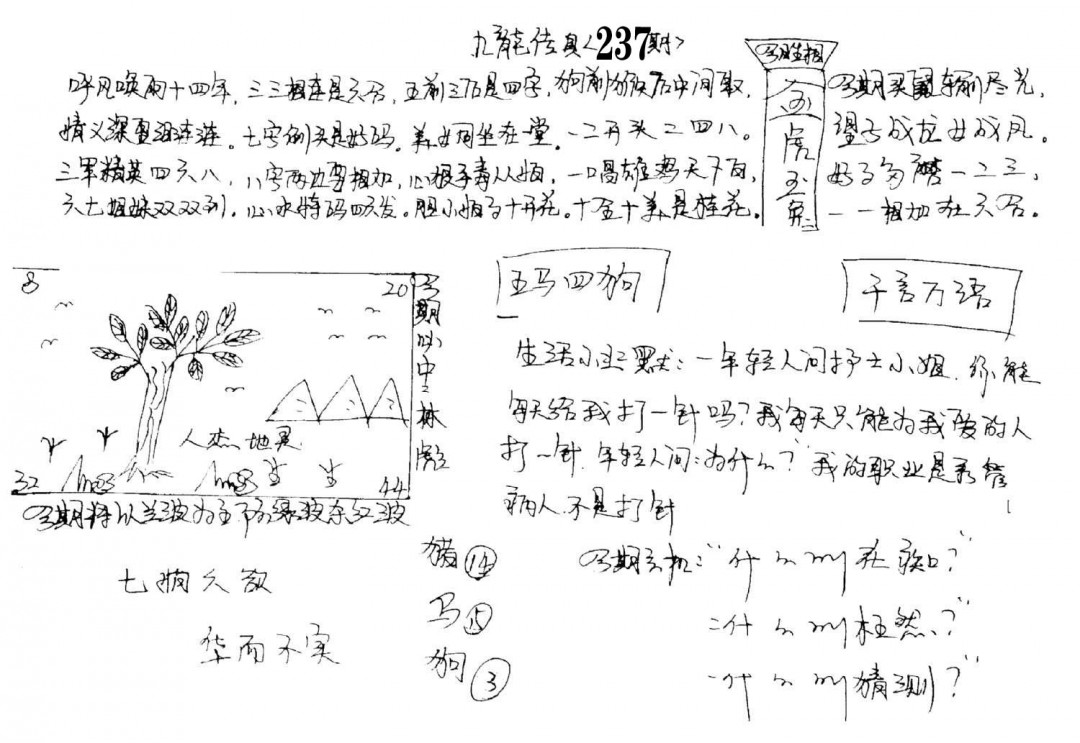 九龍传真〈237期〉
呼风唤雨十四年，三三相连是六合，五前三后是四字，狗前猴后中间取，
情义深重浪连连。七字倒头是好码。羊女同坐在堂。一二开头二四八。
三军精英四六八，八字两边要相加，一唱雄鸡天下白，
六七姐妹双双到，心水特码四六发。胆小十开花。十全十美是桂花。
今期生相
金虎玉兔
今期买尽光，
望子成龙女成凤。
一二三，
一一相加在六合。
8
20
32
44
人杰地灵
今期必中：林彪
今期特以兰波为主下为绿波东红波
五马四狗
千言万语
生活小幽默：一年轻人问护士小姐，你能
每天给我打一针吗？我每天只能为我爱的人
打一针，年轻人问：为什么？我的职业是看管
病人，不是打针
七
华而不实
猪⑭
马⑮
狗③
今期玄机："什么叫在？"
二什么叫枉然？"
一什么叫猜测？"